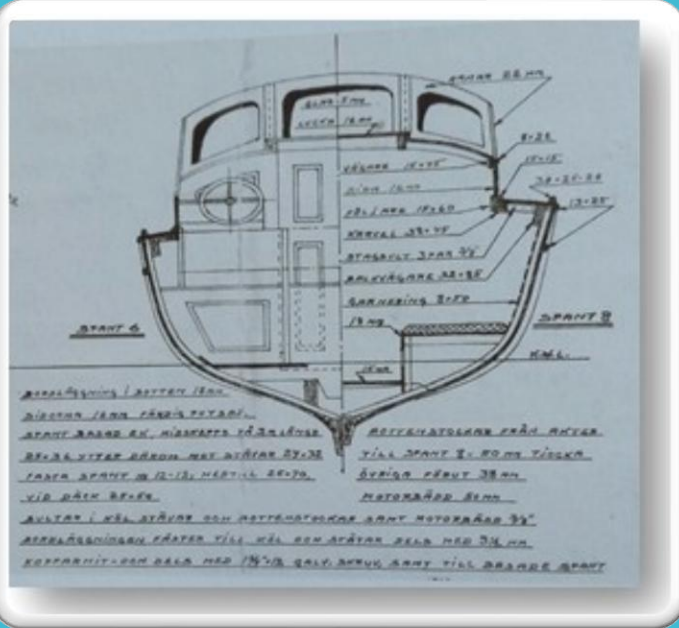 RAMAR 22 MM
GLAS 5 MM
LUCKA 16 MM
8×26
15×15
VÄGARE 15×45
SIDA 16 MM
13×25
FÖLJARE 15×60
KRAVELL 38×45
STAGBULT 3 PAR 3/8"
BALKVÄGARE 32×85
GARNERING 8×50
SPANT 6
18 MM
SPANT 8
KVL.
15 MM
BORDLÄGGNING I BOTTEN 18 MM
SIDORNA 16 MM FÄRDIG PUTSAD.
SPANT BASAD EK, MIDSKEPPS PÅ 3M LÄNGD
UTTER DÄROM MOT STÄVAR 29×32
FASTA SPANT NEDTILL 25×70
VID DÄCK
BOTTENSTOCKAR FRÅN AKTER
TILL SPANT 8 = 50 MM TJOCKA
ÖVRIGA FÖRUT 38 MM
MOTORBÄDD 50 MM
BULTAR I KÖL STÄVAR OCH BOTTENSTOCKAR SAMT MOTORBÄDD 3/8"
BORDLÄGGNINGEN FÄSTES TILL KÖL OCH STÄVAR DELS MED MM
KOPPARNIT- OCH DELS MED GALV. SKRUV, SAMT TILL BASADE SPANT